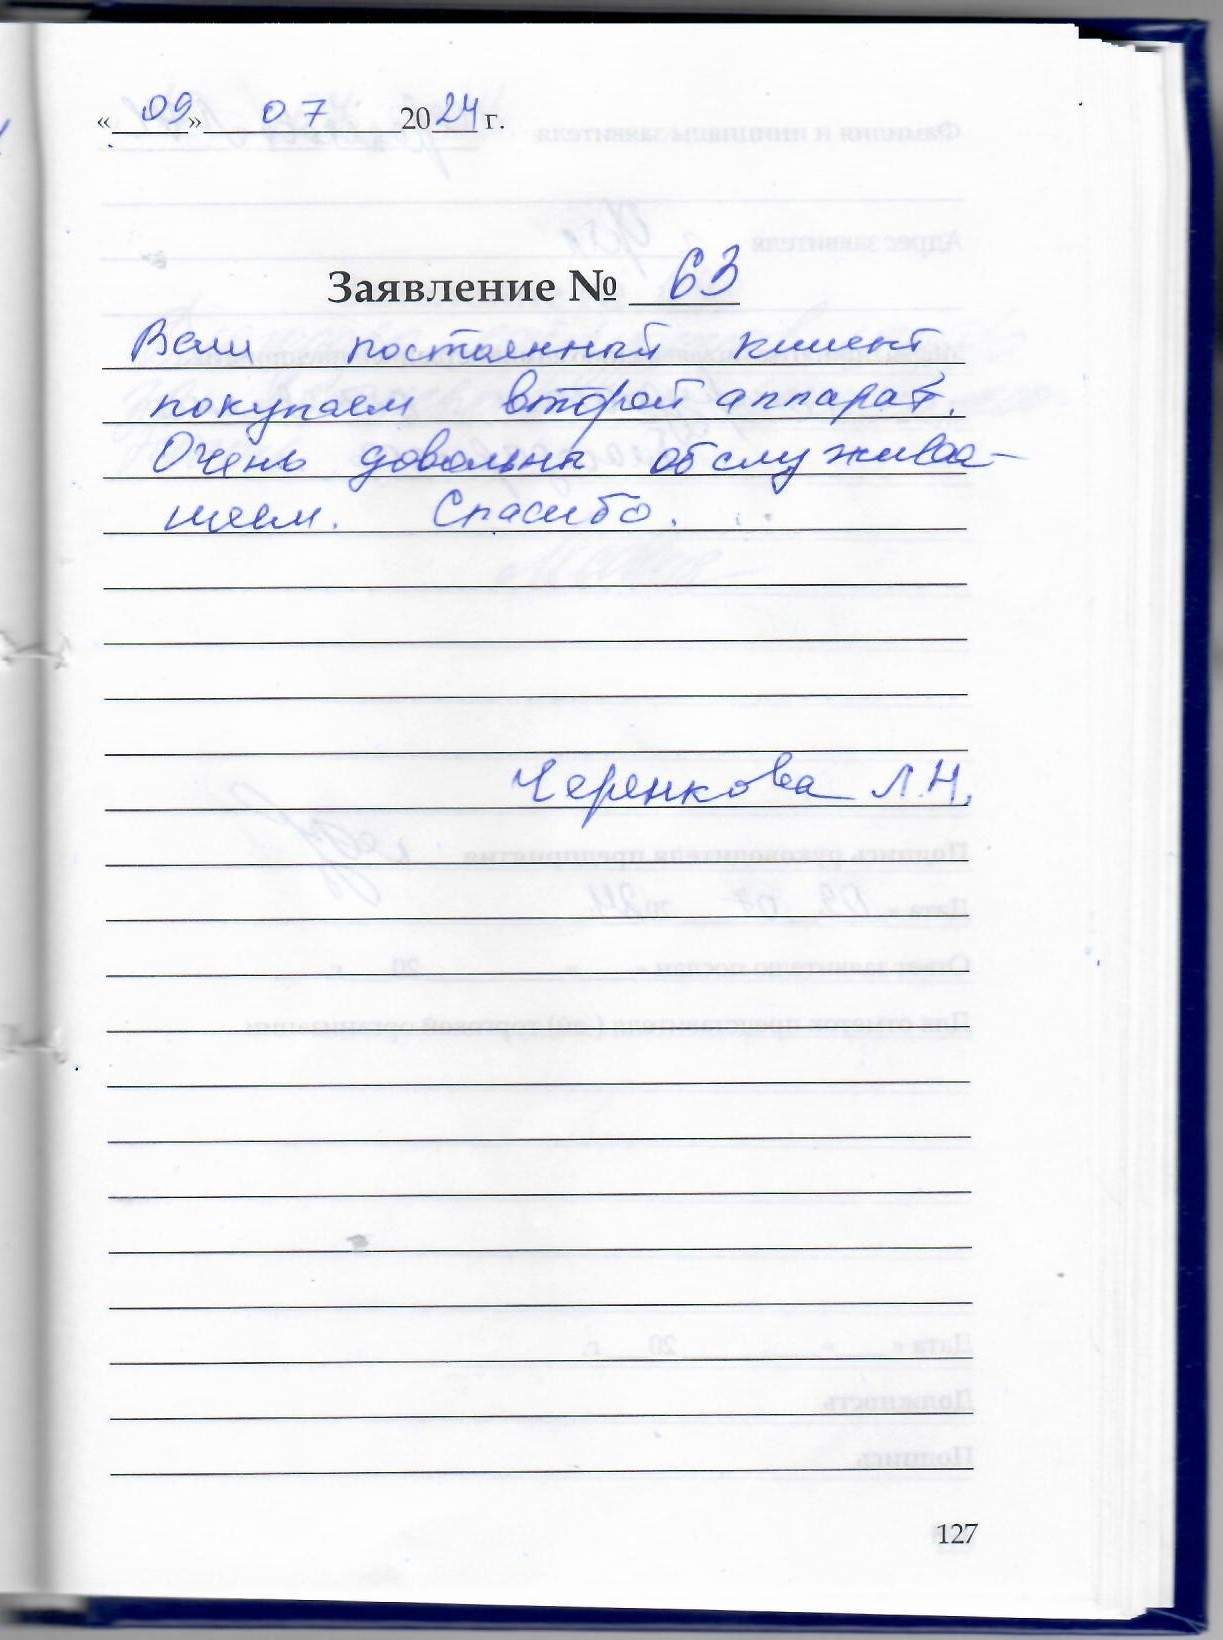 «09» 07 2024 г.
Заявление № 63
Ваш постоянный клиент
покупаем второй аппарат.
Очень довольны обслужива-
нием. Спасибо.
Черенкова Л.Н.
127